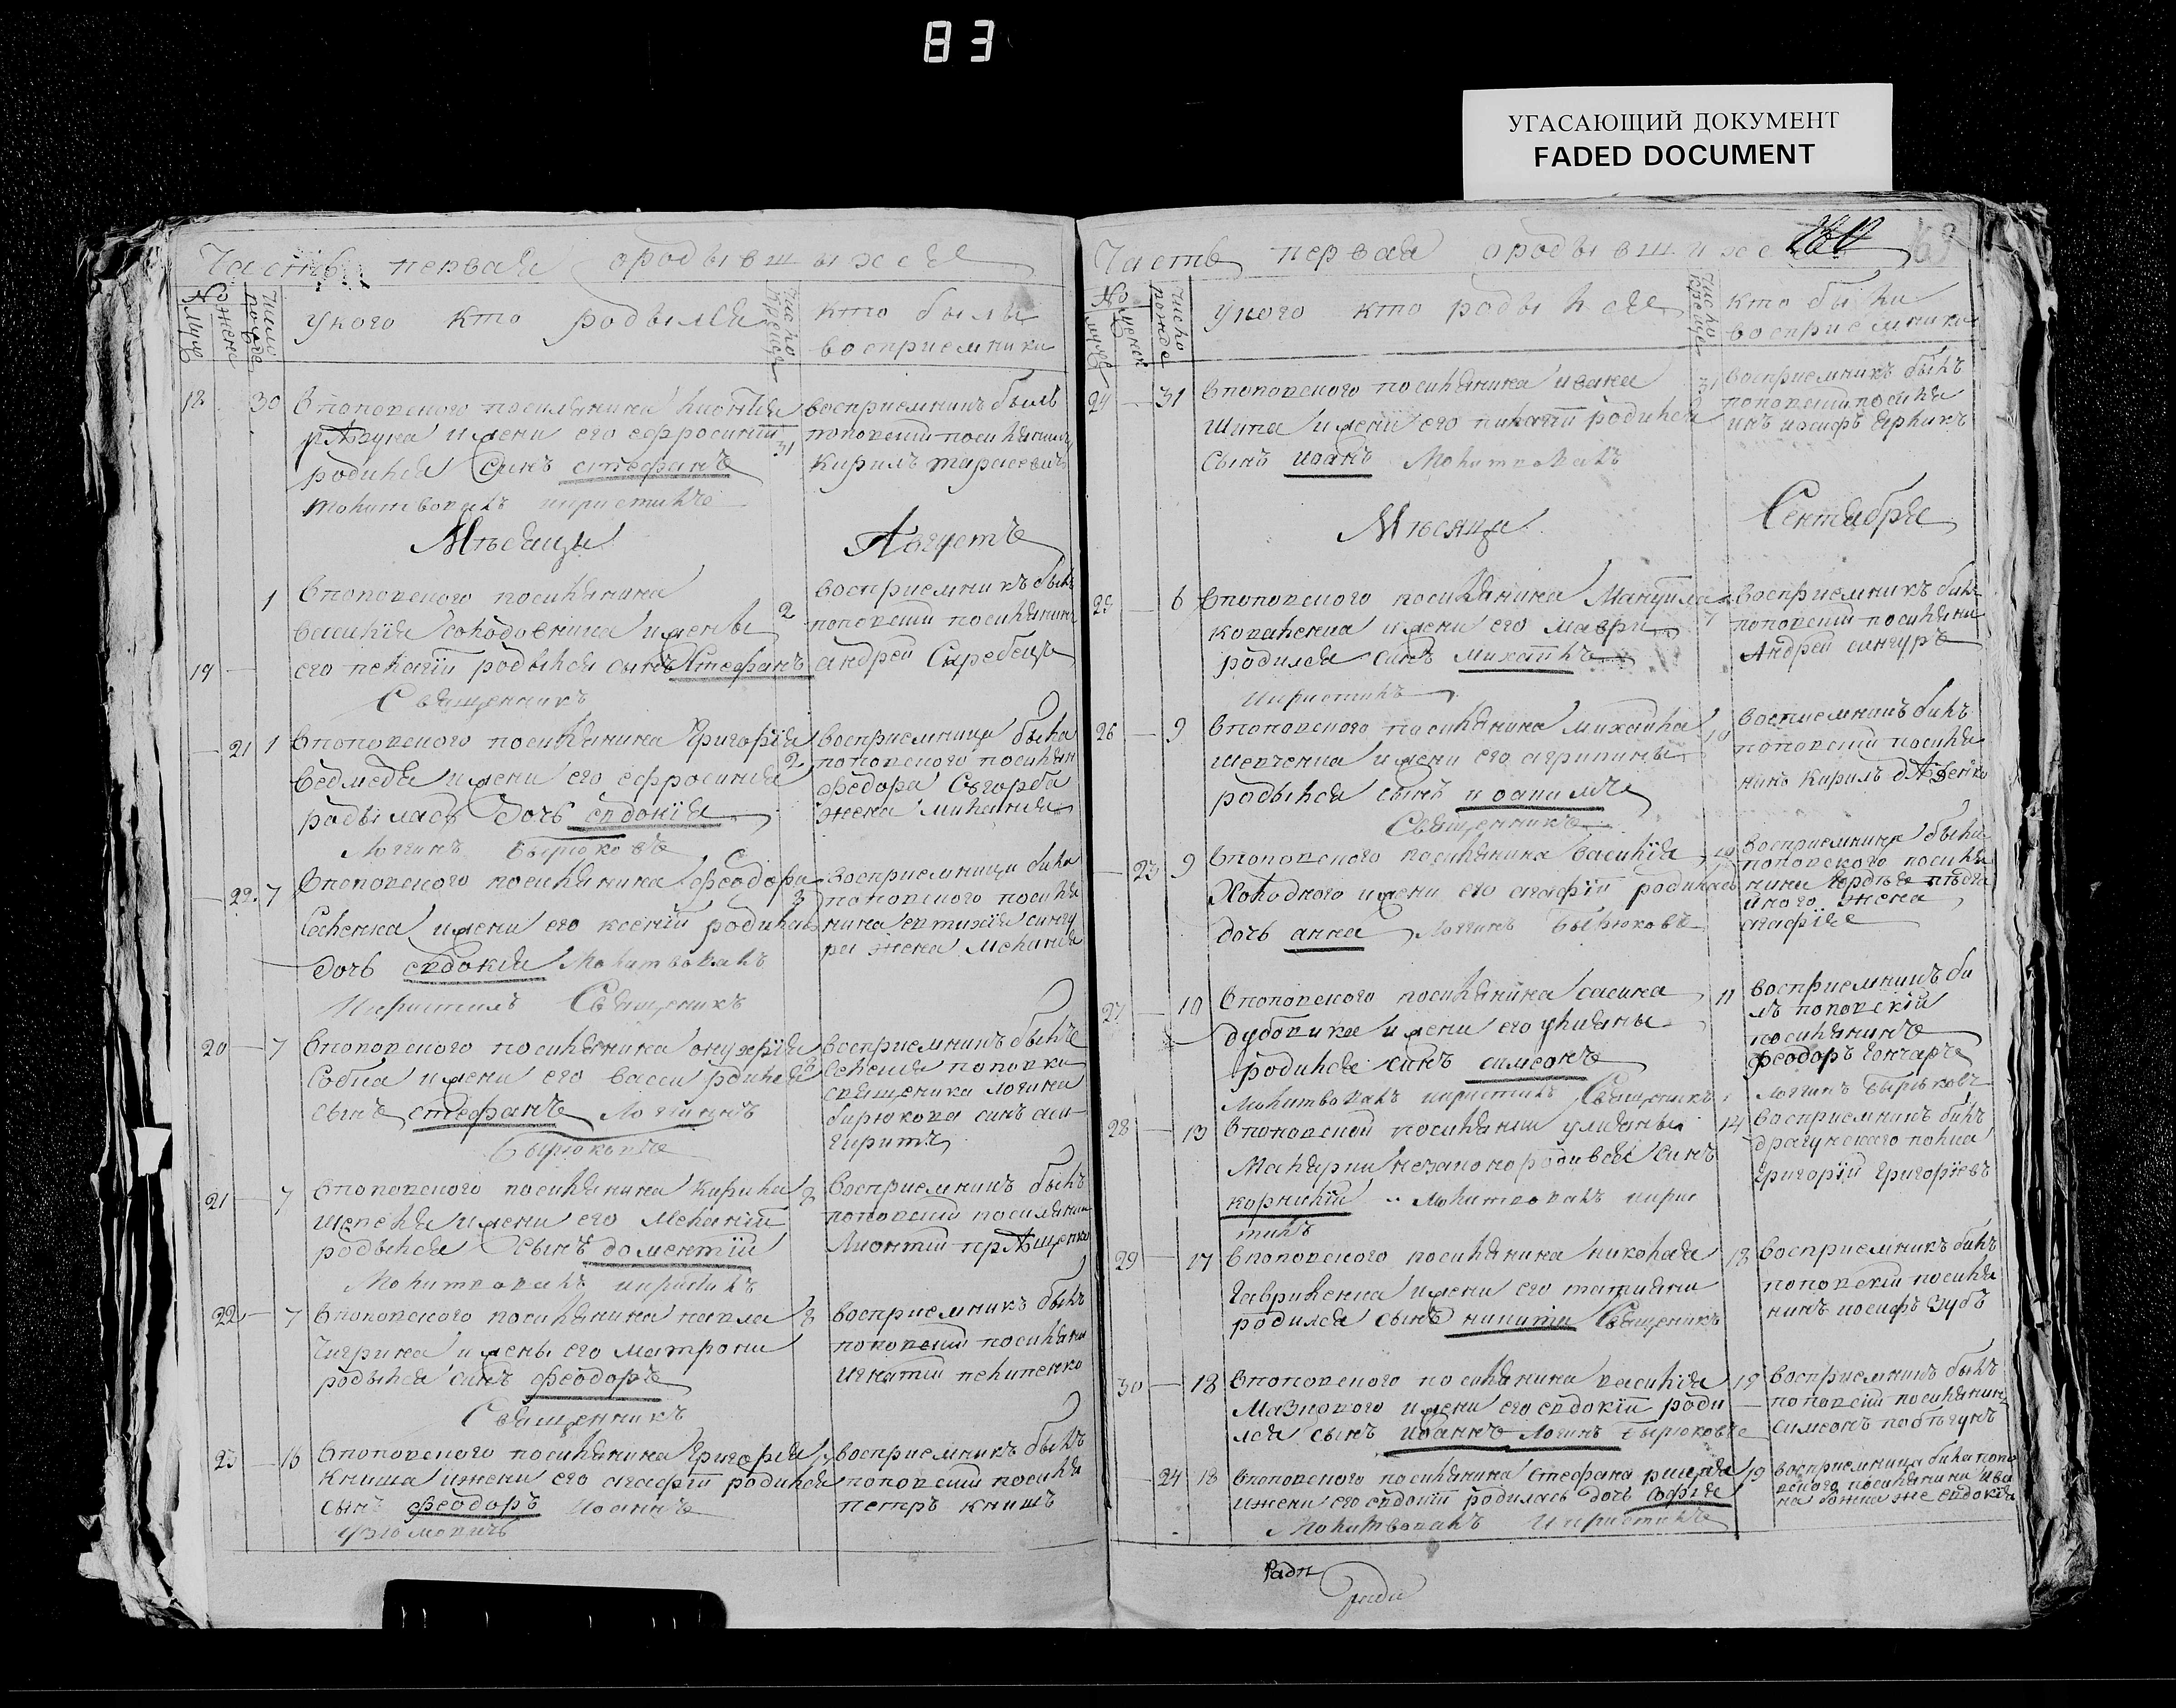 83
УГАСАЮЩИЙ ДОКУМЕНТ
FADED DOCUMENT
Часть первая ородывшыхся
№ Муж
жене
число рожде
укого кто родылся
число креще
кто былы
восприемники
18 30 Впоповского поселянина Лионтия
рябука ижени его ефросинии
родился Синъ стефанъ
молитвовалъ икрестилъ
31 восприемникъ былъ
поповский поселянинъ
Кирилъ тарасевичъ
Мѣсяцы Августъ
1 Впоповского поселянина
василия солодовника иженвы
19 его пелагии родылся сынъ Стефанъ
Священникъ
2 восприемникъ былъ
поповский поселянинъ
андрей Скребецъ
21 1 Впоповского поселянина Григорія
ведмедя ижени его ефросиния
родылась дочъ евдокія
Логгинъ Бырюковъ
2 восприемница была
поповского поселян
федора Сягорба
жена миланія
22 7 Впоповского поселянина феодора
Саченка ижени его ксении родилась
дочь евдокия Молитвовалъ
Икристилъ Священикъ
восприемница била
поповского поселя
нина евтихия сингу
ра жена меланія
20 7 Впоповского поселянина онуфрія
Собка ижени его васси рдился
сынъ стефанъ Логгинъ
Бырюковъ
8 восприемникъ былъ
селения поповки
священика логина
бирюкова синъ
21 7 Впоповского поселянина Кирила
шепеля ижени его Меланіи
родылся Сынъ доментій
Молитвовалъ икристилъ
8 восприемникъ былъ
поповский поселянин
Лионтій терещенко
22 7 Впоповского поселянина павла
Чигрина ижены его матрони
родылся синъ феодоръ
Священникъ
8 восприемникъ былъ
поповский поселянин
игнатій пелипенко
23 16 Впоповского поселянина Григорія
Книша ижени его агафіи родился
сынъ феодоръ Иоаннъ
восприемникъ былъ
поповский поселя
петръ книшъ
Часть первая ородывшихс
63
№ муж
женск
число рожде
укого кто родылся
число креще
кто были
восприемники
24 31 Впоповского поселянина ивана
шипа ижени его пилагіи родился
сынъ иоанъ Молитвовалъ
31 восприемникъ былъ
поповский поселя
нинъ иосифъ Ярликъ
Мѣсяца Сентября
25 6 Впоповского поселянина Мануила
коваленка ижени его маври
родился синъ михаилъ
Икристилъ
7 восприемникъ билъ
поповский поселянин
Андрей сингуръ
26 9 Впоповского поселянина михаила
шевченка ижени его агрипины
родылся сынъ иоакимъ
Священникъ
10 восприемникъ билъ
поповский поселя
нинъ Кирилъ дяченко
23 9 Впоповского поселянина василія
Холодного ижени его агафіи родилась
дочь анна Логгинъ Бырюковъ
10 восприемника были
поповского поселя
нина жена
агафія
27 10 Впоповского поселянина савика
дубовика ижени его улияны
родился синъ симеонъ
молитвовалъ икристилъ Священикъ
11 восприемникъ би
лъ поповскій
поселянинъ
феодоръ Гончаръ
Логгинъ Бырюковъ
28 13 Впоповской поселянки улияны
Макарки незаконородився синъ
корнилій молитвовалъ икрис
тилъ
14 восприемникъ билъ
драгунскаго полка
Григорій Григоріевъ
29 17 Впоповского поселянина николая
Гавриленка ижени его татияни
родился сынъ никита Священикъ
18 восприемникъ билъ
поповскій поселя
нинъ иосифъ Зубъ
30 18 Впоповского поселянина василія
Мазнового ижени его евдокіи роди
лся сынъ иоаннъ Логинъ Бырюковъ
19 восприемникъ былъ
поповскій поселянин
симеонъ побѣгунъ
24 18 Впоповского поселянина стефана
ижени его евдокіи родилась дочь софія
Молитвовалъ Икристилъ
19 восприемница била попо
вского поселянина ива
на же евдокія